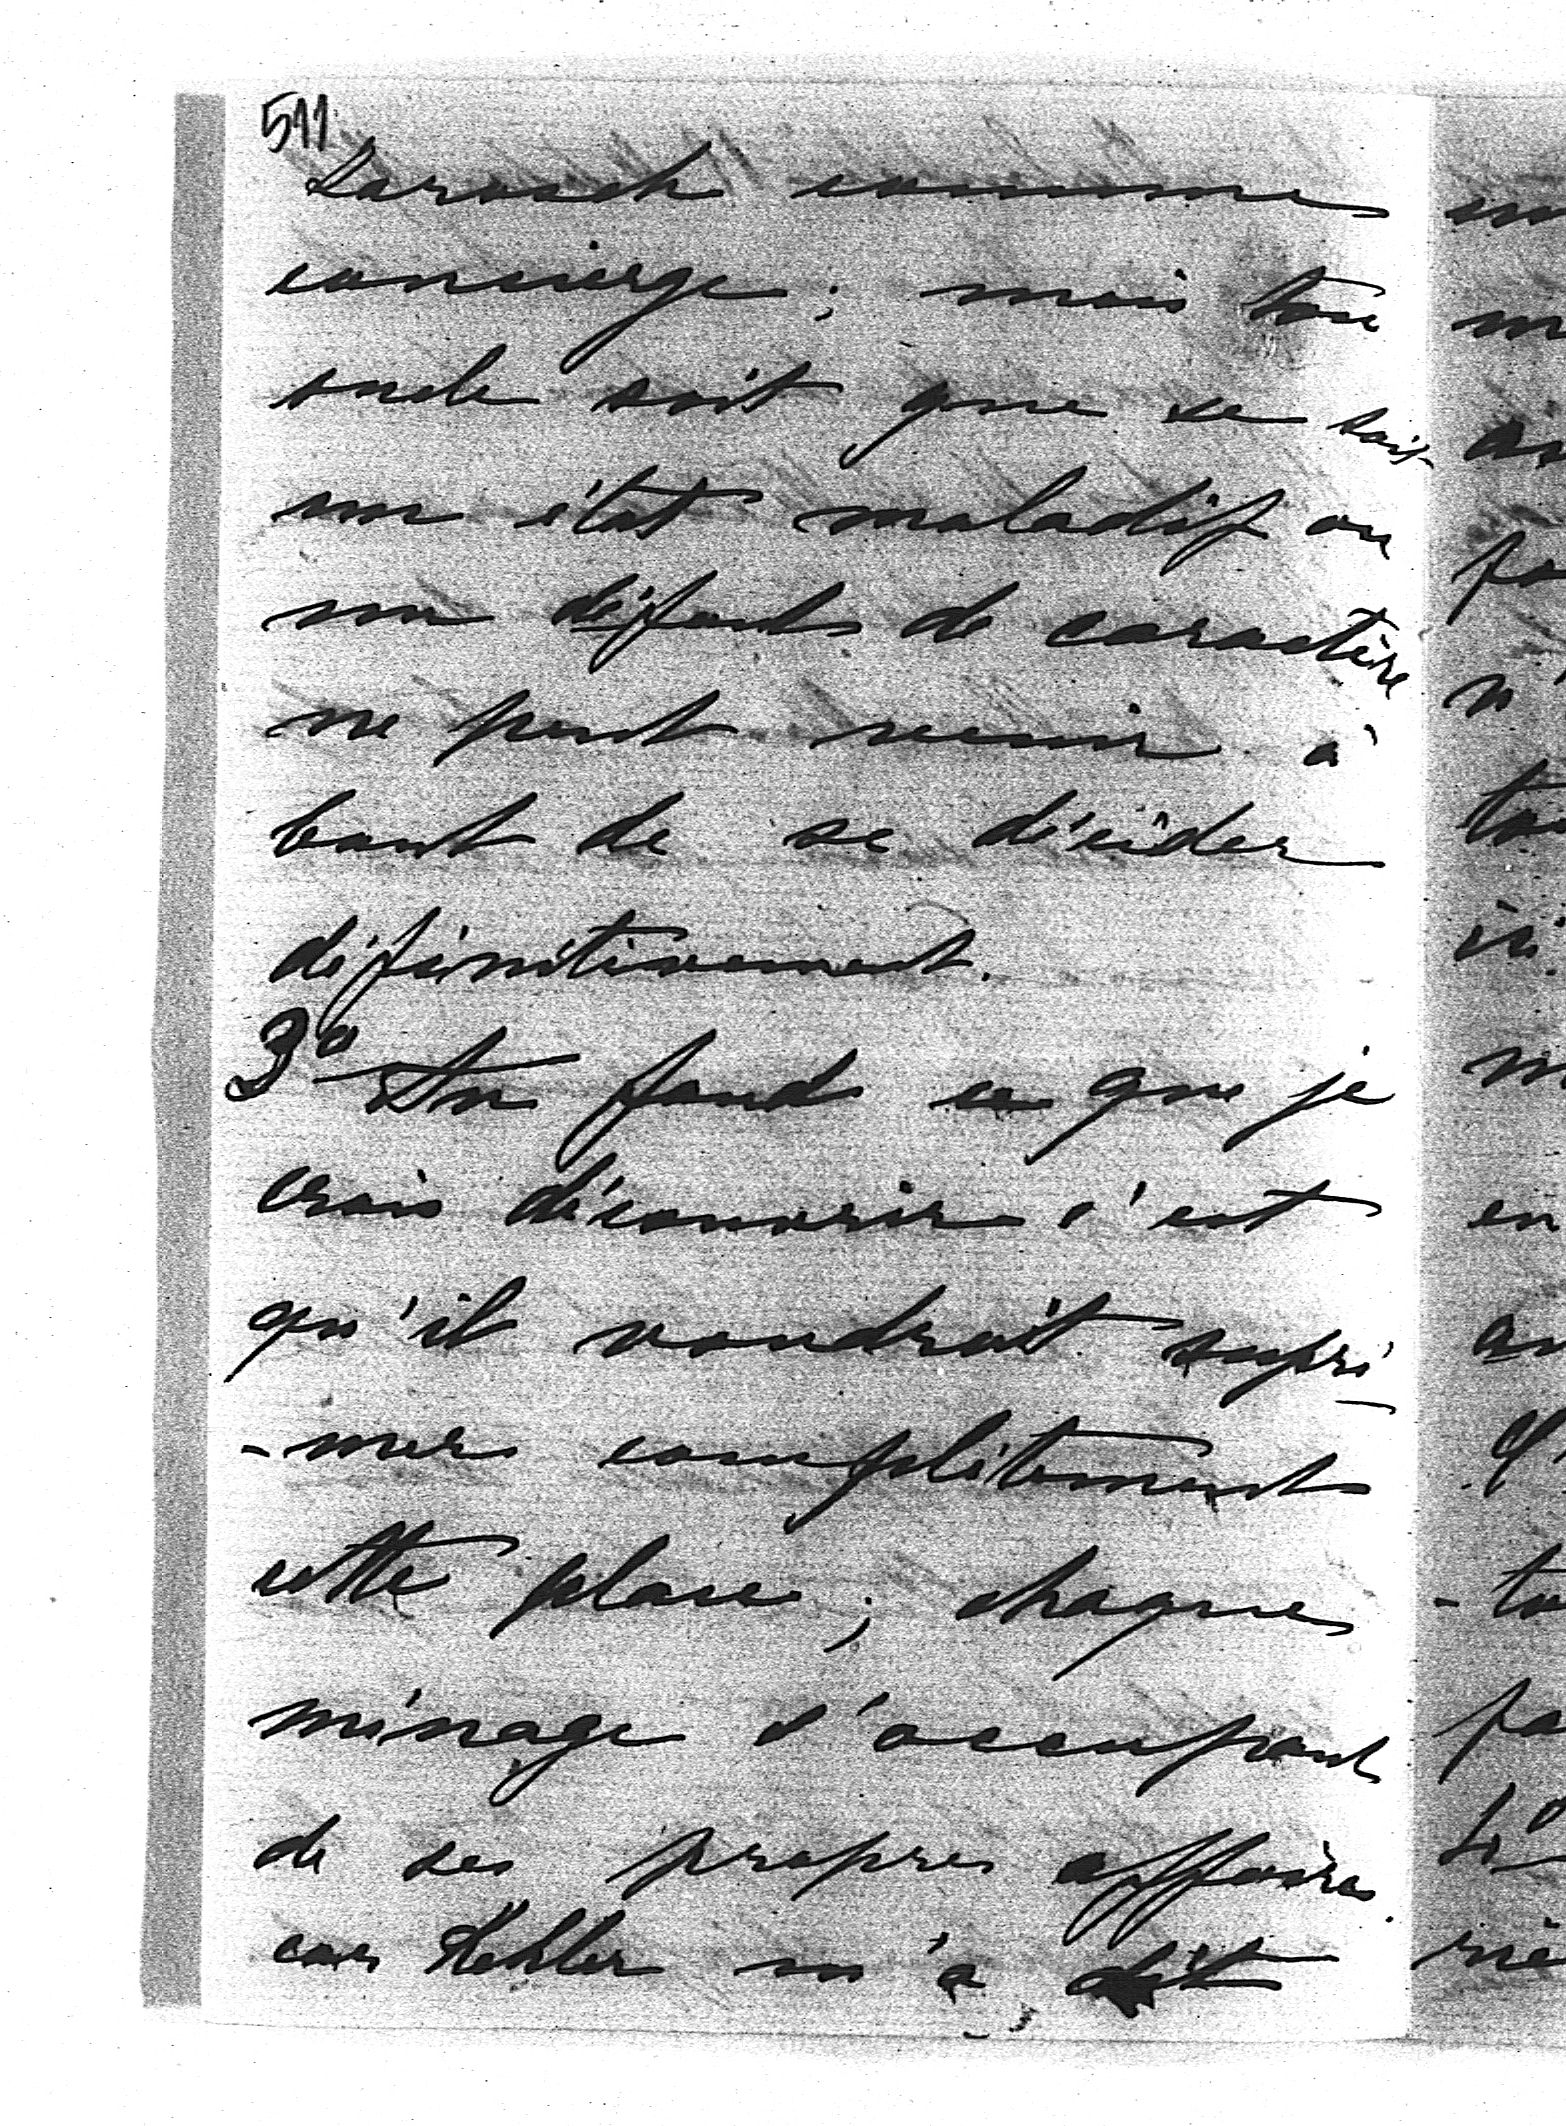 511
Larosch comme
concierge; mais ton
oncle soit que ce soit
un état maladif ou
un défaut de caractère
ne peut venir à
bout de se décider
définitivement.
3° Au fond ce que je
crois découvrir c'est
qu'il voudrait supri
-mer complètement
cette place; chaque
ménage s'occupant
de ses propres affaires.
car Kehler m'a dit